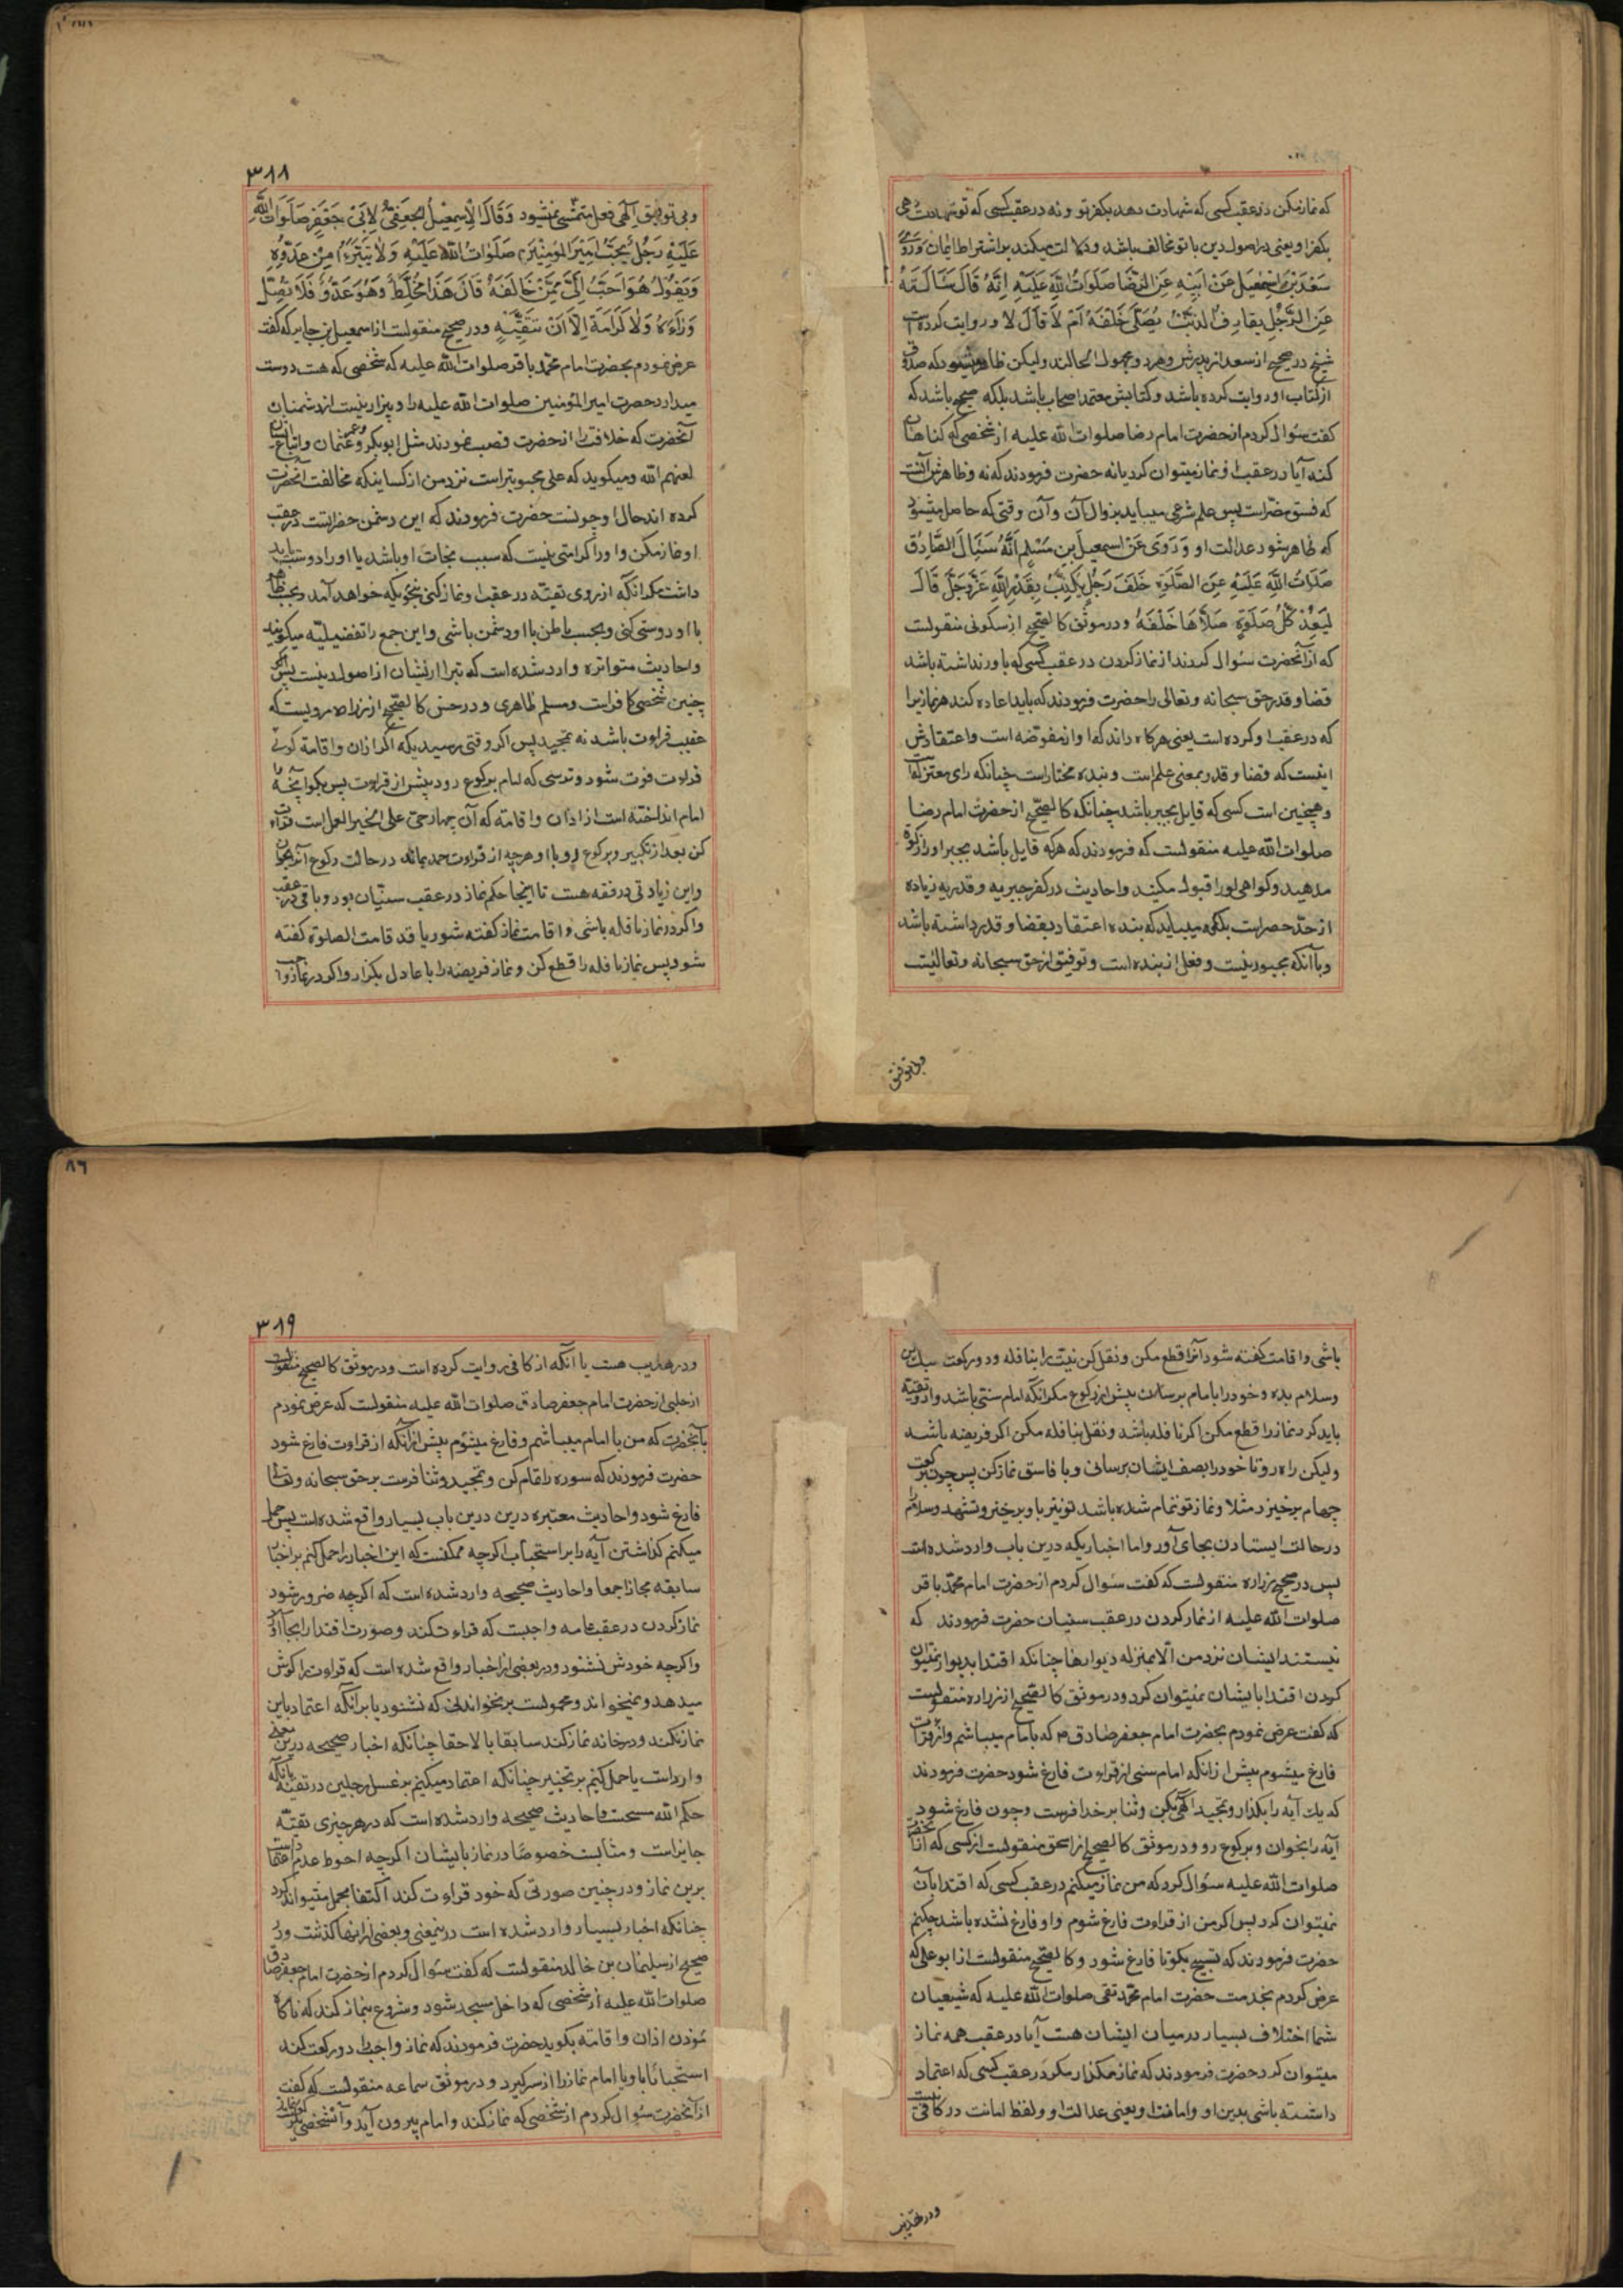 که نماز مکن در عقب کسی که شهادت دهد بکفر تو و نه در عقب کسی که تو شهادت دهی
بکفر او یعنی در اصول دین با تو مخالف باشد و دلالت میکند بر اشتراط ایمان وَرَوی
سَعْدُ بْنُ اِسْمٰعیلَ عَنْ اَبیهِ عَنِ الرِّضا صَلَواتُ اللّهِ عَلَیْهِ اِنَّهُ قالَ سَاَلْتُهُ
عَنِ الرَّجُلِ یُقارِفُ الذَّنْبَ یُصَلّی خَلْفَهُ اَمْ لا قالَ لا و روایت کرده است
شیخ در صحیح از سعد از پدرش و هر دو مجهول الحالند ولیکن ظاهر میشود که صدوق
از کتاب او روایت کرده باشد و کتابش معتمد اصحاب باشد بلکه صحیح باشد که
کفت سؤال کردم از حضرت امام رضا صلوات الله علیه از شخصی که کناهان
کند آیا در عقب او نماز میتوان کرد یا نه حضرت فرمودند که نه و ظاهرش آنست
که فسق مضّر است پس علم شرعی میباید بزوال آن و آن وقتی که حاصل میشود
که ظاهر شود عدالت او وَ رَوَی عَنْ اسمعیل بن مُسْلِم اَنَّهُ سُئِالَ الصّادِقُ
صَلَواتُ اللّهِ عَلَیْهِ عَنِ الصَّلوةِ خَلْفَ رَجُلٍ یُکَذِّبُ بِقَدَرِ اللّهِ عَزَّ وَجَلَّ قالَ
لِیُعِدْ کُلَّ صَلوةٍ صَلاّها خَلْفَهُ و در موثق کالصحیح از سکونی منقولست
که از آنحضرت سئوال کردند از نماز کردن در عقب کسی که باور نداشته باشد
قضا و قدر حق سبحانه و تعالی را حضرت فرمودند که باید اعاده کند هر نماز یرا
که در عقب او کرده است یعنی هرکاه داند که او از مفوضه است و اعتقادش
اینست که قضا و قدر بمعنی علم است و بنده مختار است چنانکه رای معتزله است
و همچنین است کسی که قایل بجبر باشد چنانکه کالصحیح از حضرت امام رضا
صلوات الله علیه منقولست که فرمودند که هرکه قایل باشد بجبر او را زکوة
مدهید و کواهی او را قبول مکنید و احادیث در کفر جبریه و قدریه زیاده
از حدّ حصر است بلکه میباید که بنده اعتقاد بقضا و قدر داشته باشد
و با آنکه مجبور نیست و فعل از بنده است و توفیق از حق سبحانه و تعالیست
و بی توفیق
۳۸۸
و بی توفیق الهی فعل متمشی نمیشود وَ قالَ اِسمٰعیلُ الجُعفیُّ لِاَبی جَعْفَرٍ صَلَواتُ اللّهِ
عَلَیْهِ رَجُلٌ یُحِبُّ اَمیرَ المُؤمِنینَ صَلَواتُ اللّهِ عَلَیْهِ وَلا یَتَبَرَّءُ مِنْ عَدُوِّهِ
وَ یَقُولُ هُوَ اَحَبُّ اِلَیَّ مِمَّنْ خالَفَهُ قالَ هَذا مُخَلِّطٌ وَهُوَ عَدُوٌّ فَلا تُصَلِّ
وَرَاءَهُ وَلا کَرَامَةَ اِلّا اَنْ تَتَّقِیَهِ و در صحیح منقولست از اسمعیل بن جابر که کفت
عرض نمودم بحضرت امام محمد باقر صلوات الله علیه که شخصی که هست دوست
میدارد حضرت امیر المؤمنین صلوات الله علیه را و بیزار نیست از دشمنان
آنحضرت که خلافت را از حضرت غصب نمودند مثل ابو بکر و عمر و عثمان و اتباع ایشان
لعنهم الله و میکوید که علی محبوبتر است نزد من از کسانیکه مخالفت آنحضرت
کرده اند حال او چونست حضرت فرمودند که این دشمن حضرتست در عقب
او نماز مکن و او را کرامتی نیست که سبب نجات او باشد یا او را دوست باید
داشت مکر آنکه از روی تقیّه در عقب او نماز کنی بنحویکه خواهد آمد و بحسب ظاهر
با او دوستی کنی و بحسب باطن با او دشمن باشی و این جمع را تفضیلیّه میکویند
و احادیث متواتره وارد شده است که تبرا از یشان از اصول دینست پس اکر
چنین شخصی کافر است و مسلم ظاهری و در حسن کالصحیح از زراره مرویست که
عقیب قراءت باشد نه تمجید پس اکر وقتی برسید یکه اکر اذان و اقامة کوئی
قراءت فوت شود و ترسی که امام برکوع رود پیش از قراءت پس بکو آنچه را
امام انداخته است از اذان و اقامة که آن چهار حیّ علی خیر العمل است قراءة
کن بعد از تکبیر و برکوع رو با او هرچه از قراءت حمد بماند در حالت رکوع آنرا بخوان
و این زیادتی در فقه هست تا اینجا حکم نماز در عقب سنیّان بود و باقی در عقب
و اکر در نماز نافله باشی و اقامت نماز کفته شود یا قد قامت الصلوة کفته
شود پس نماز نافله را قطع کن و نماز فریضه را با عادل بکزار و اکر در نماز واجب
باشی و اقامت کفته شود آنرا قطع مکن و نقل کن نیت را بنافله و دو رکعت سبک کن
وسلام بده و خود را بامام برسان پیش از رکوع مکر آنکه امام سنّی باشد و از و تقیه
باید کرد نماز را قطع مکن اکر نافله باشد و نقل بنافله مکن اکر فریضه باشد
ولیکن راه رو تا خود را بصف ایشان برسانی و با فاسق نماز کن پس چون برکعت
چهارم برخیزد مثلا و نماز تو تمام شده باشد تو نیز با و برخیز و تشهد و سلام را
در حالت ایستادن بجای آور و اما اخباریکه درین باب وارد شده است
پس در صحیح زراره منقولست که کفت سئوال کردم از حضرت امام محمّد باقر
صلوات الله علیه از نماز کردن در عقب سنیان حضرت فرمودند که
نیستند ایشان نزد من الّا بمنزله دیوارها چنانکه اقتدا بدیوار نمیتوان
کردن اقتدا بایشان نمیتوان کرد و در موثق کالصحیح از زراره منقولست
که کفت عرض نمودم بحضرت امام جعفر صادق ص که با امام میباشم و از قراءت
فارغ میشوم پیش از آنکه امام سنی از قراءت فارغ شود حضرت فرمودند
که یك آیه را بکذار و تمجید الهی بکن و ثنا بر خدا فرست و چون فارغ شود
آیه را بخوان و برکوع رو و در موثق کالصحیح از اسحق منقولست از کسی که از آنحضرت
صلوات الله علیه سئوال کرد که من نماز میکنم در عقب کسی که اقتدا بآن
نمیتوان کرد پس اکر من از قراءت فارغ شوم و او فارغ نشده باشد چکنم
حضرت فرمودند که تسبیح بکو تا فارغ شود و کالصحیح منقولست از ابو علی که
عرض کردم بخدمت حضرت امام محمّد تقی صلوات الله علیه که شیعیان
شما اختلاف بسیار در میان ایشان هست آیا در عقب همه نماز
میتوان کرد حضرت فرمودند که نماز مکذار مکر در عقب کسی که اعتماد
داشته باشی بدین او و امانت او یعنی عدالت او و لفظ امانت در کافی نیست
و در تهذیب
۳۸۹
۸۶
و در تهذیب هست با آنکه از کافی روایت کرده است و در موثق کالصحیح منقولست
از حلبی از حضرت امام جعفر صادق صلوات الله علیه منقولست که عرض نمودم
بآنحضرت که من با امام میباشم و فارغ میشوم پیش از آنکه از قراءت فارغ شود
حضرت فرمودند که سوره را تمام کن و تمجید و ثنا فرست بر حق سبحانه و تعالی تا
فارغ شود و احادیث معتبره درین درین باب بسیار واقع شده است پس حمل
میکنم کذاشتن آیه را بر استحباب اکرچه ممکنست که این اخبار را حمل کنم بر اخبار
سابقه مجازا جمعا و احادیث صحیحه وارد شده است که اکرچه ضرور شود
نماز کردن در عقب عامه واجبست که قراءت کند و صورت اقتدا را بجا آورد
و اکرچه خودش نشنود و در بعضی از اخبار واقع شده است که قراءت را کوش
میدهد و نمیخواند و محمولست بر نخواندنی که نشنود یا بر آنکه اعتماد باین
نماز نکند و در خانه نماز کند سابقا یا لاحقا چنانکه اخبار صحیحه درین معنی
وارد است یا حمل کنیم بر تخییر چنانکه اعتماد میکنیم بر غسل رجلین در تقیّه با آنکه
حکم الله مسحست و احادیث صحیحه وارد شده است که در هر چیزی تقیّه
جایز است و مثابست خصوصًا در نماز با ایشان اکرچه احوط عدم اعتماد است
برین نماز و در چنین صورتی که خود قراءت کند اکتفا بحمد میتواند کرد
چنانکه اخبار بسیار وارد شده است درینمعنی و بعضی از اینها کذشت و در
صحیح از سلیمان بن خالد منقولست که کفت سئوال کردم از حضرت امام جعفر صادق
صلوات الله علیه از شخصی که داخل مسجد شود و شروع بنماز کند که ناکاه
مؤذن اذان و اقامة بکوید حضرت فرمودند که نماز واجب را دو رکعت کند
استحبابًا با و یا امام نماز را از سر کیرد و در موثق سماعه منقولست که کفت
از آنحضرت سئوال کردم از شخصی که نماز کند و امام بیرون آید و آنشخص یکرکعت